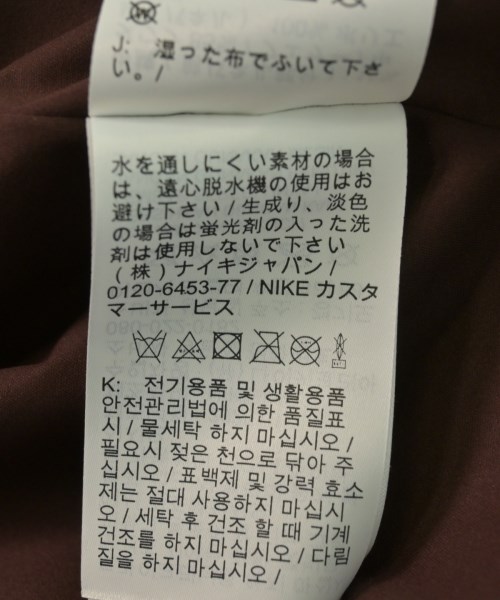 J: 湿った布でふいて下さ
い。/
水を通しにくい素材の場合
は、遠心脱水機の使用はお
避け下さい / 生成り、淡色
の場合は蛍光剤の入った洗
剤は使用しないで下さい
(株) ナイキジャパン /
0120-6453-77 / NIKE カスタ
マーサービス
K: 전기용품 및 생활용품
안전관리법에 의한 품질표
시 / 물세탁 하지 마십시오 /
필요시 젖은 천으로 닦아 주
십시오 / 표백제 및 강력 효소
제는 절대 사용하지 마십시
오 / 세탁 후 건조 할 때 기계
건조를 하지 마십시오 / 다림
질을 하지 마십시오 /